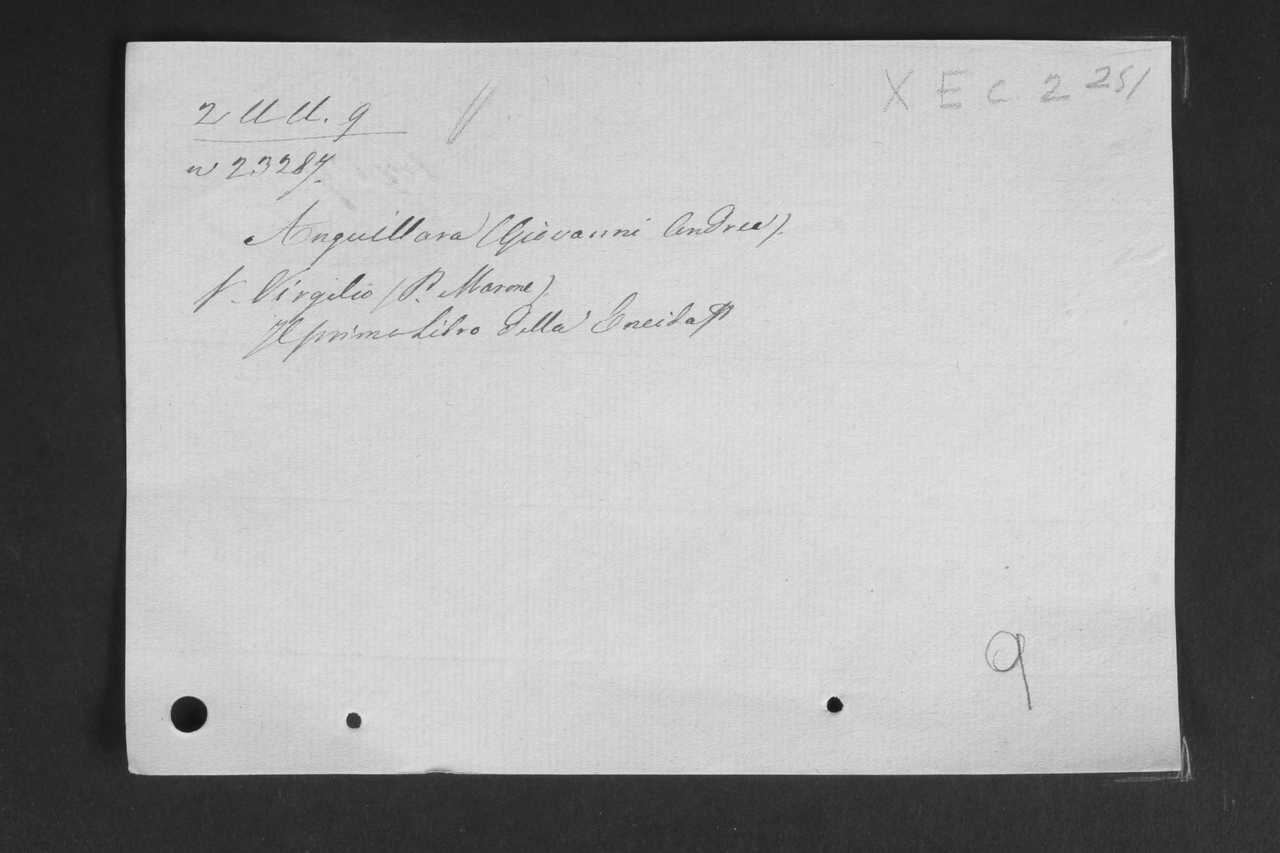 X E C 2 251
2 U U. 9
n 23287.
Anguillara (Giovanni Andrea).
V. Virgilio (P. Marone)
Il primo Libro della Eneida
9